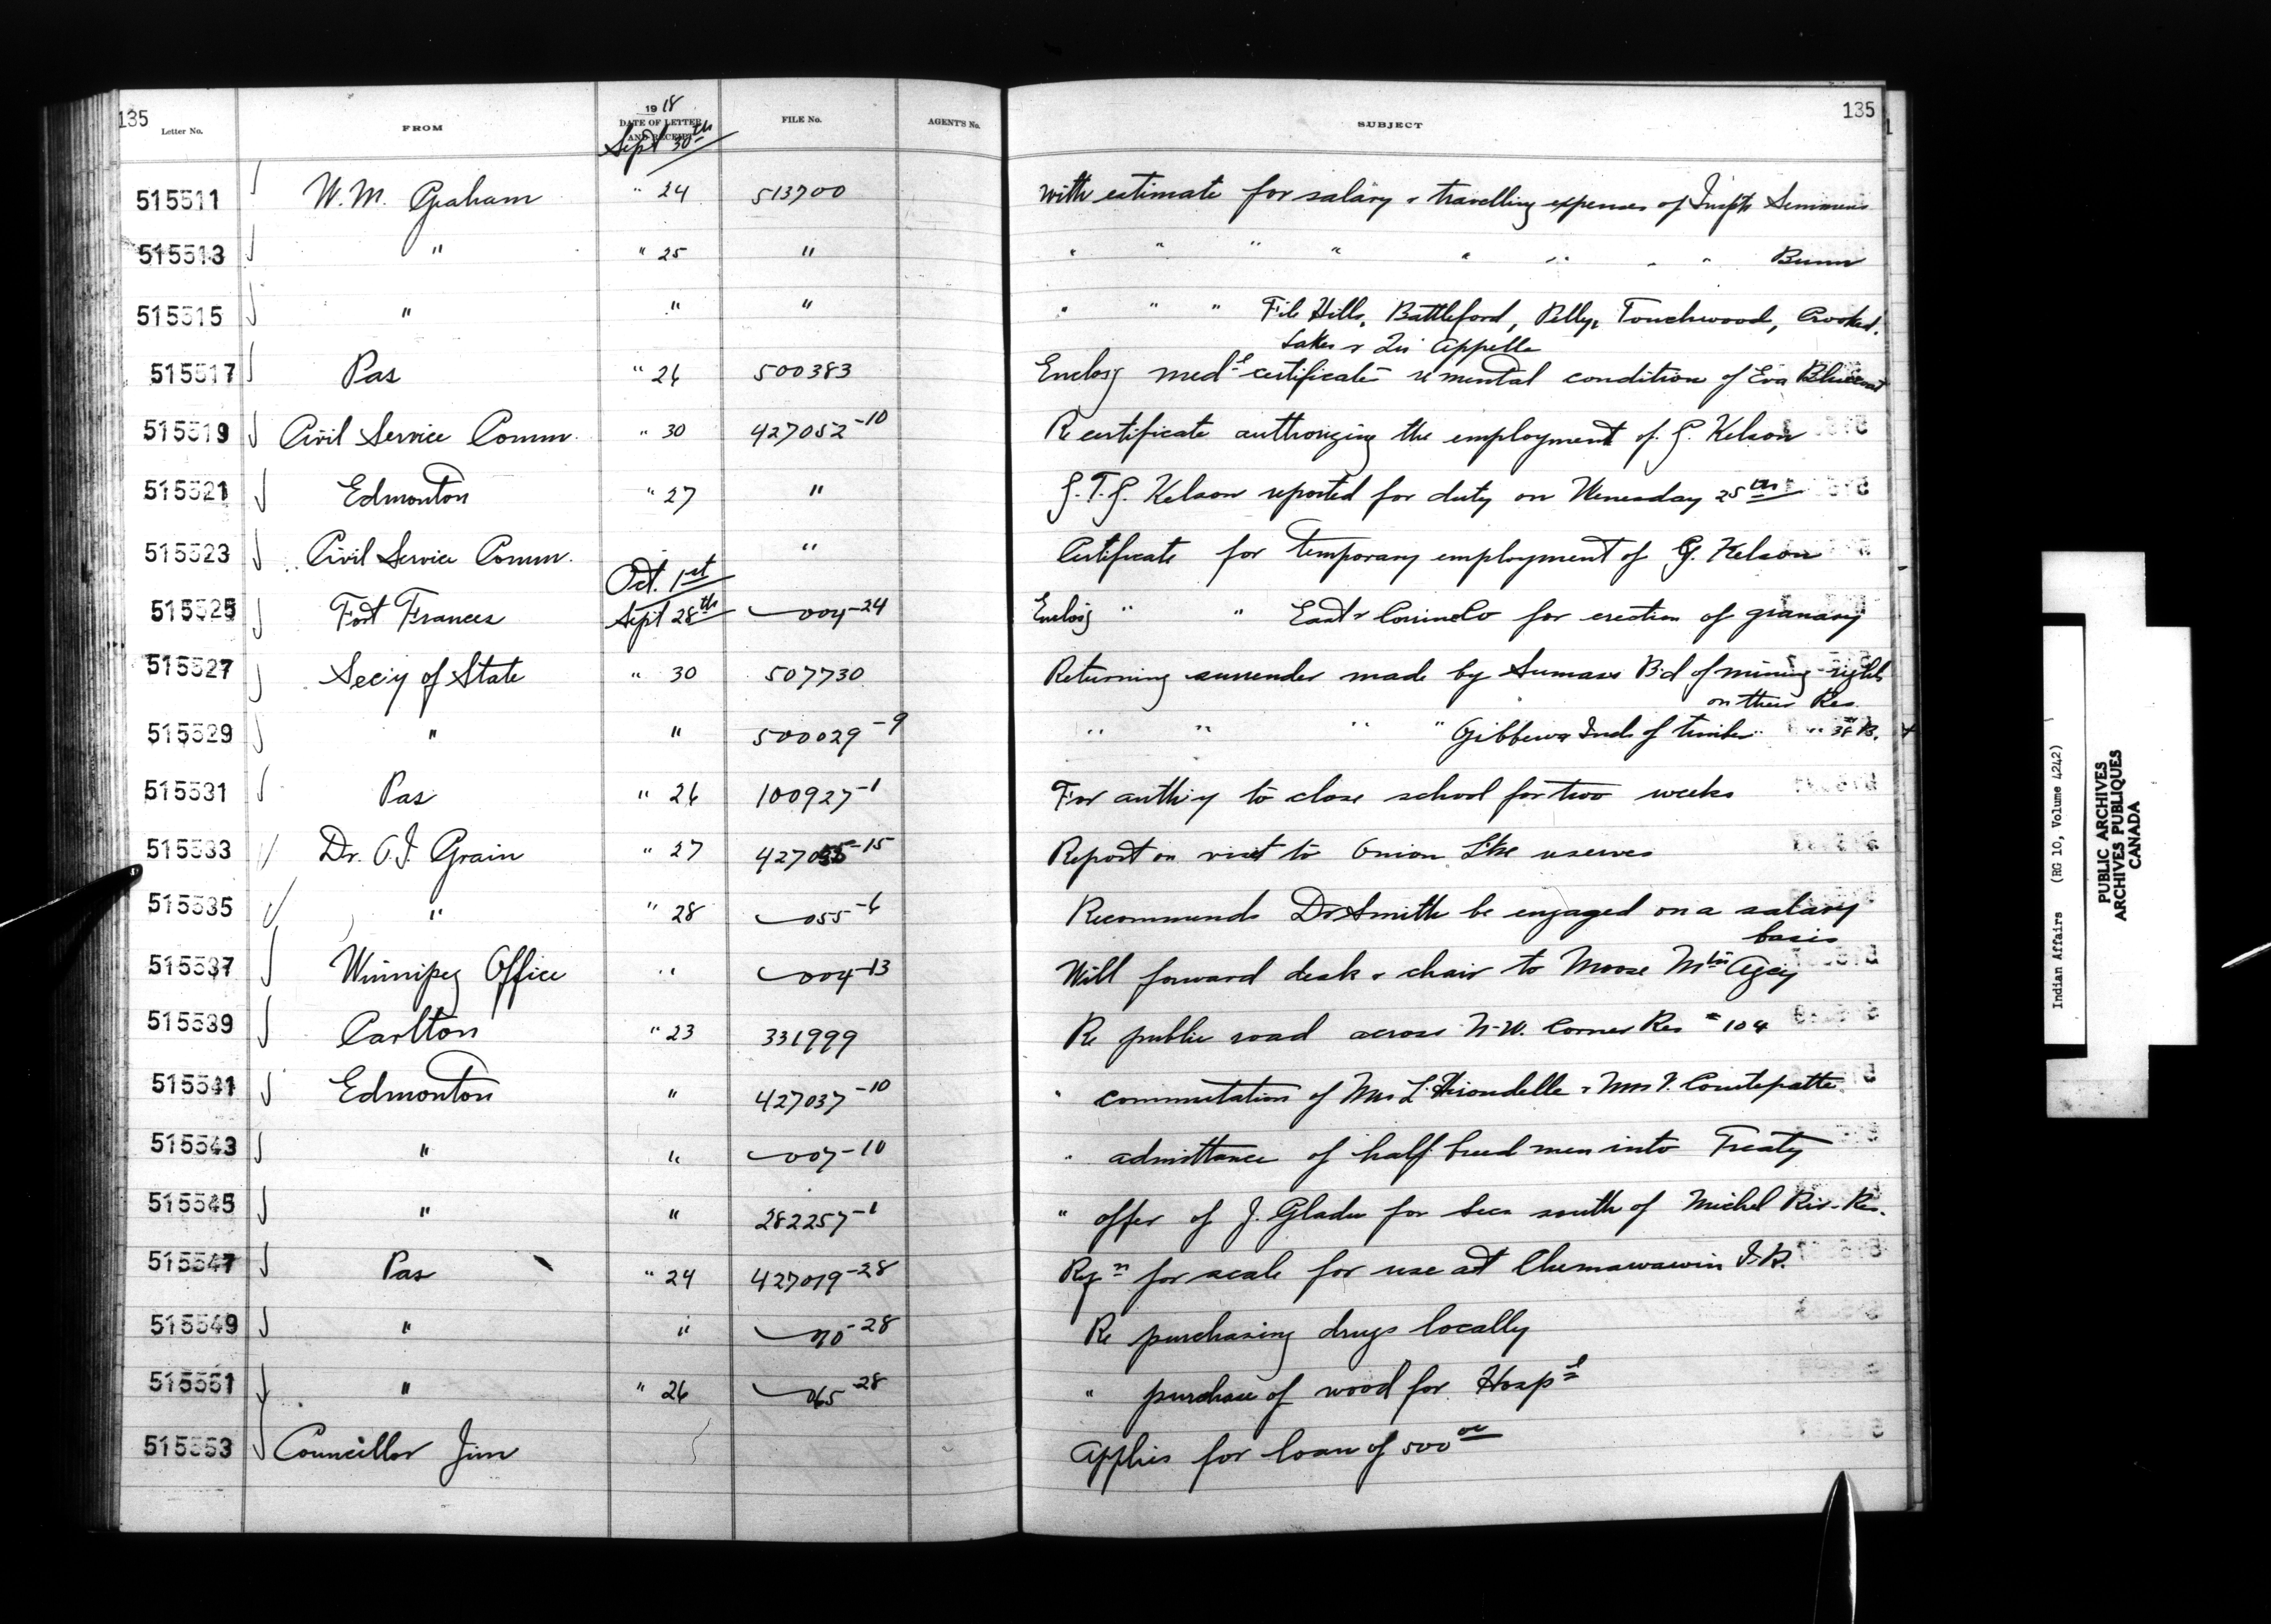 135
Letter No. FROM 1918 DATE OF LETTER AND RECEIPT FILE No. AGENT'S No. SUBJECT 135
Sept 30th
515511 W. M. Graham " 24 513700 With estimate for salary & travelling expenses of Insptr Semmens
515513 " " 25 " " " " " " " " " Bunn
515515 " " " " " " File Hills, Battleford, Pelly, Touchwood, Crooked
Lakes & Qu'Appelle
515517 Pas " 26 500383 Enclosg medl certificates re mental condition of Eva
515519 Civil Service Comm. " 30 427052-10 Re certificate authorizing the employment of G. Kelson
515521 Edmonton " 27 " G. T. G. Kelson reported for duty on Wenesday 25th
515523 Civil Service Comm. " Certificate for temporary employment of G. Kelson
Oct. 1st
515525 Fort Frances Sept 28th 004-24 Enclosg " " for erection of granary
515527 Sec'y of State " 30 507730 Returning surrender made by Sumass Bd of mining rights
on their Res.
515529 " " 500029-9 " " " " Gibbewa Inds of timber " " B.
515531 Pas " 26 100927-1 For auth'y to close school for two weeks
515533 Dr. O. I. Grain " 27 427055-15 Report on visit to Onion Lke reserves
515535 " " 28 055-6 Recommends Dr Smith be engaged on a salary
basis
515537 Winnipeg Office " 004-13 Will forward desk & chair to Moose Mtn Agcy
515539 Carlton " 23 331999 Re public road across N-W. Corner Res # 104
515541 Edmonton " 427037-10 " commutation of Mrs L'Hirondelle & Mrs V. Courtepatte
515543 " " 007-10 " admittance of half breed men into Treaty
515545 " " 282257-1 " offer of J. Gladu for Sec south of Michel Res.
515547 Pas " 24 427019-28 Reqn for scale for use at Chemawawin I.R.
515549 " " 70-28 Re purchasing drugs locally
515551 " " 26 065-28 " purchase of wood for Hospl
515553 Councillor Jim Applies for loan of 500 00
Indian Affairs (RG 10, Volume 4242)
PUBLIC ARCHIVES
ARCHIVES PUBLIQUES
CANADA